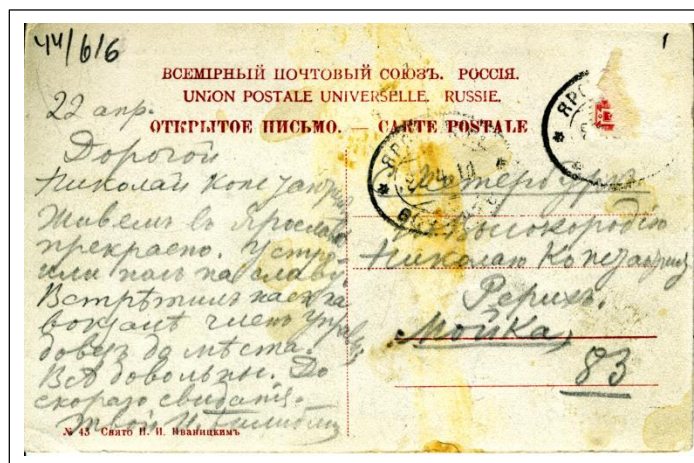 44/6/6
1
ВСЕМІРНЫЙ ПОЧТОВЫЙ СОЮЗЪ. РОССІЯ.
UNION POSTALE UNIVERSELLE. RUSSIE.
ОТКРЫТОЕ ПИСЬМО. — CARTE POSTALE
22 апр.
Дорогой
Николай
Живемъ въ
прекрасно. Устро-
или насъ на славу.
Встрѣтилъ насъ на
вокзалѣ членъ
довезъ до мѣста.
Всѣ довольны. До
скораго свиданія.
Твой И. Билибинъ
Петербургъ
Его Высокородію
Николаю
Рерихъ.
Мойка,
83
№ 43 Снято И. И. Иваницкимъ